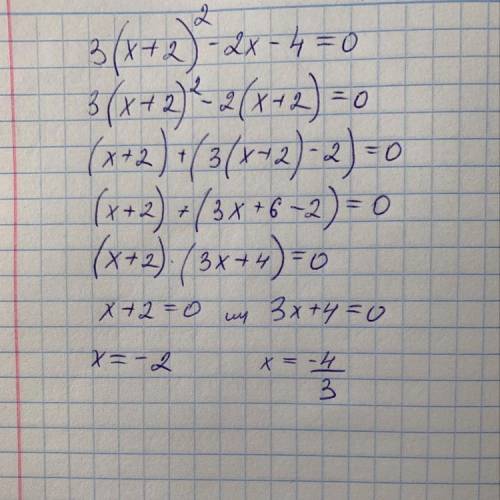 3(x+2)² - 2x - 4 = 0
3(x+2)² - 2(x+2) = 0
(x+2) + (3(x+2) - 2) = 0
(x+2) + (3x + 6 - 2) = 0
(x+2) · (3x+4) = 0
x + 2 = 0 или 3x + 4 = 0
x = -2 x = -4/3